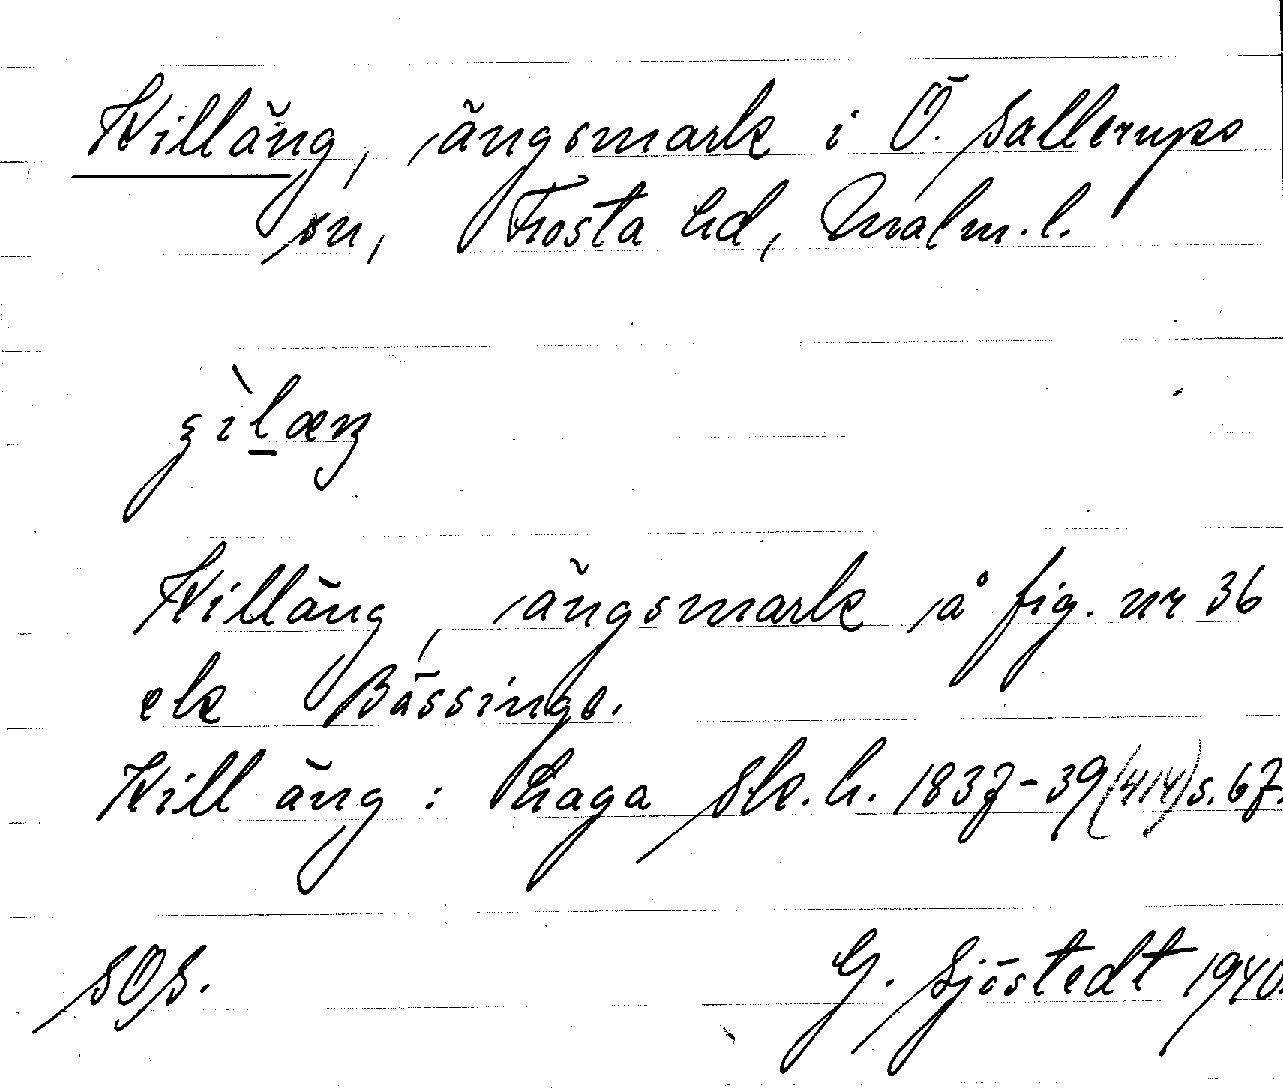 Killäng, ängsmark i Ö. Sallerups
sn, Frosta hd, Malm.l.
Killäng, ängsmark å fig. nr 36
ek Bässinge.
Kill äng: Laga Sk.h. 1837-39 (414) s. 67.
SOS. G. Sjöstedt 1940.